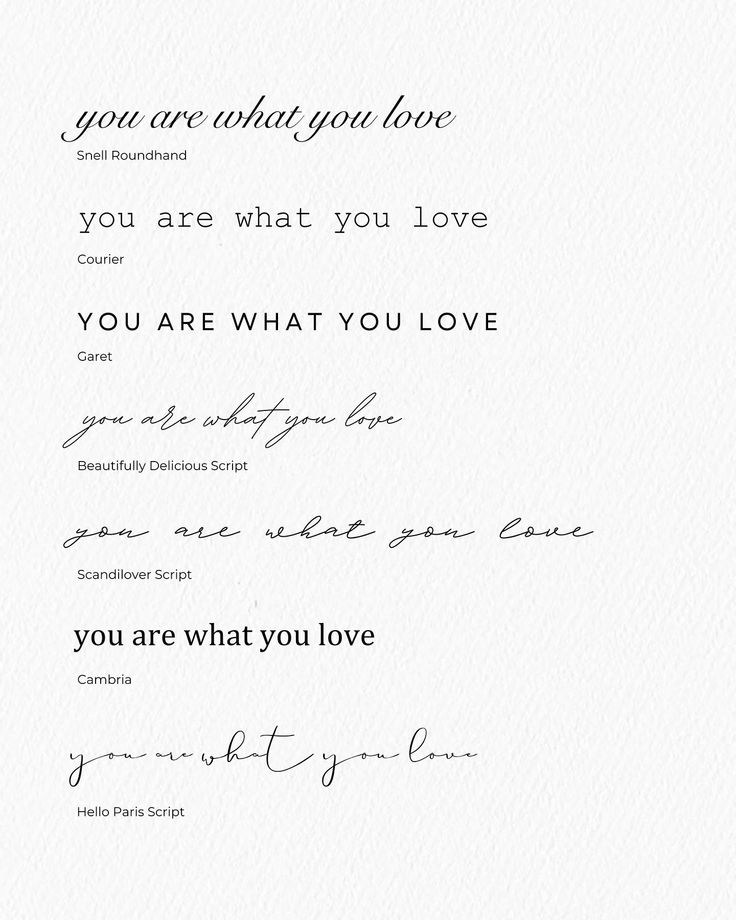 you are what you love
Snell Roundhand
you are what you love
Courier
YOU ARE WHAT YOU LOVE
Garet
you are what you love
Beautifully Delicious Script
you are what you love
Scandilover Script
you are what you love
Cambria
you are what you love
Hello Paris Script